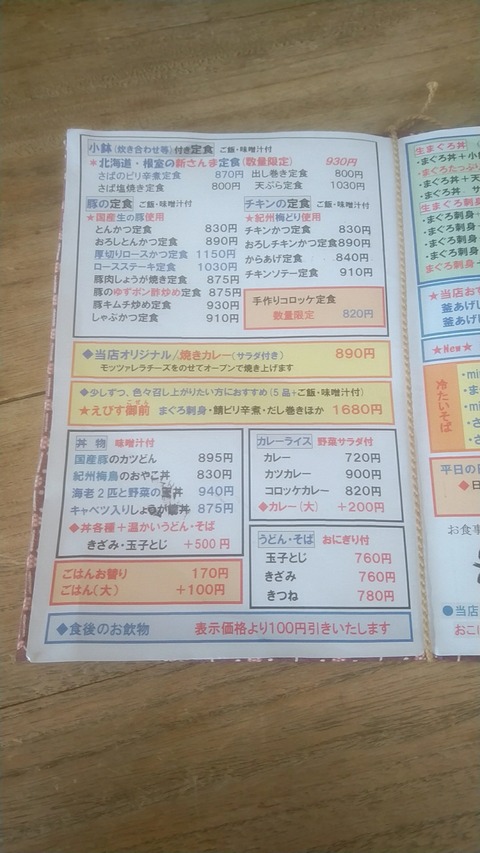 小鉢(炊き合わせ等)付き定食 ご飯・味噌汁付
★北海道・根室の新さんま定食(数量限定) 930円
さばのピリ辛煮定食 870円 出し巻き定食 800円
さば塩焼き定食 800円 天ぷら定食 1030円
豚の定食 ご飯・味噌汁付
★国産生の豚使用
とんかつ定食 830円
おろしとんかつ定食 890円
厚切りロースかつ定食 1150円
ロースステーキ定食 1030円
豚肉しょうが焼き定食 875円
豚のゆずポン酢炒め定食 875円
豚キムチ炒め定食 930円
しゃぶかつ定食 910円
チキンの定食 ご飯・味噌汁付
★紀州梅どり使用
チキンかつ定食 830円
おろしチキンかつ定食 890円
からあげ定食 840円
チキンソテー定食 910円
手作りコロッケ定食
数量限定 820円
◆当店オリジナル/焼きカレー(サラダ付き) 890円
モッツァレラチーズをのせてオーブンで焼き上げます
◆少しずつ、色々召し上がりたい方におすすめ(5品+ご飯・味噌汁付)
★えびす御前 まぐろ刺身・鯖ピリ辛煮・だし巻きほか 1680円
ごぜん
丼物 味噌汁付
国産豚のカツどん 895円
紀州梅鳥のおやこ丼 830円
海老2匹と野菜の丼 940円
キャベツ入りしょうが丼 875円
◆丼各種+温かいうどん・そば
きざみ・玉子とじ +500円
カレーライス 野菜サラダ付
カレー 720円
カツカレー 900円
コロッケカレー 820円
◆カレー(大) +200円
うどん・そば おにぎり付
玉子とじ 760円
きざみ 760円
きつね 780円
ごはんお替り 170円
ごはん(大) +100円
◆食後のお飲物 表示価格より100円引きいたします
生まぐろ丼
・まぐろ丼+小
・まぐろたっぷり
・まぐろ丼+天
・まぐろ丼 サ
生まぐろ刺身
・まぐろ刺身
・まぐろ刺身
・まぐろ刺身
まぐろ刺身
★当店お
釜あげし
釜あげ
★New★
冷たいそば
・mi
・ま
・mi
・さ
・さ
平日の日
◆日
お食事
●当店
おこ